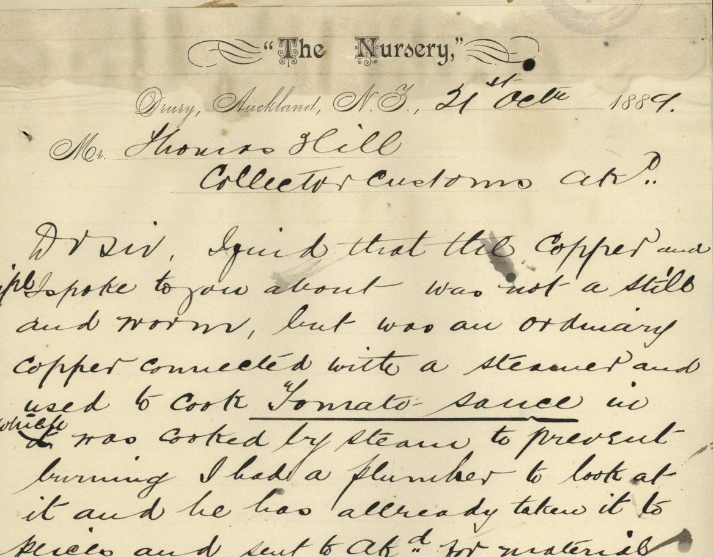 "The Nursery,"
Drury, Auckland, N.Z., 21st Octr 1889.
Mr. Thomas Hill
Collector Customs Akd.
Dr Sir, I find that the Copper and
I spoke to you about was not a still
and worm, but was an ordinary
copper connected with a steamer and
used to cook "Tomato sauce in
which
was cooked by steam to prevent
burning I had a plumber to look at
it and he has allready taken it to
peices and sent to Akd. for material